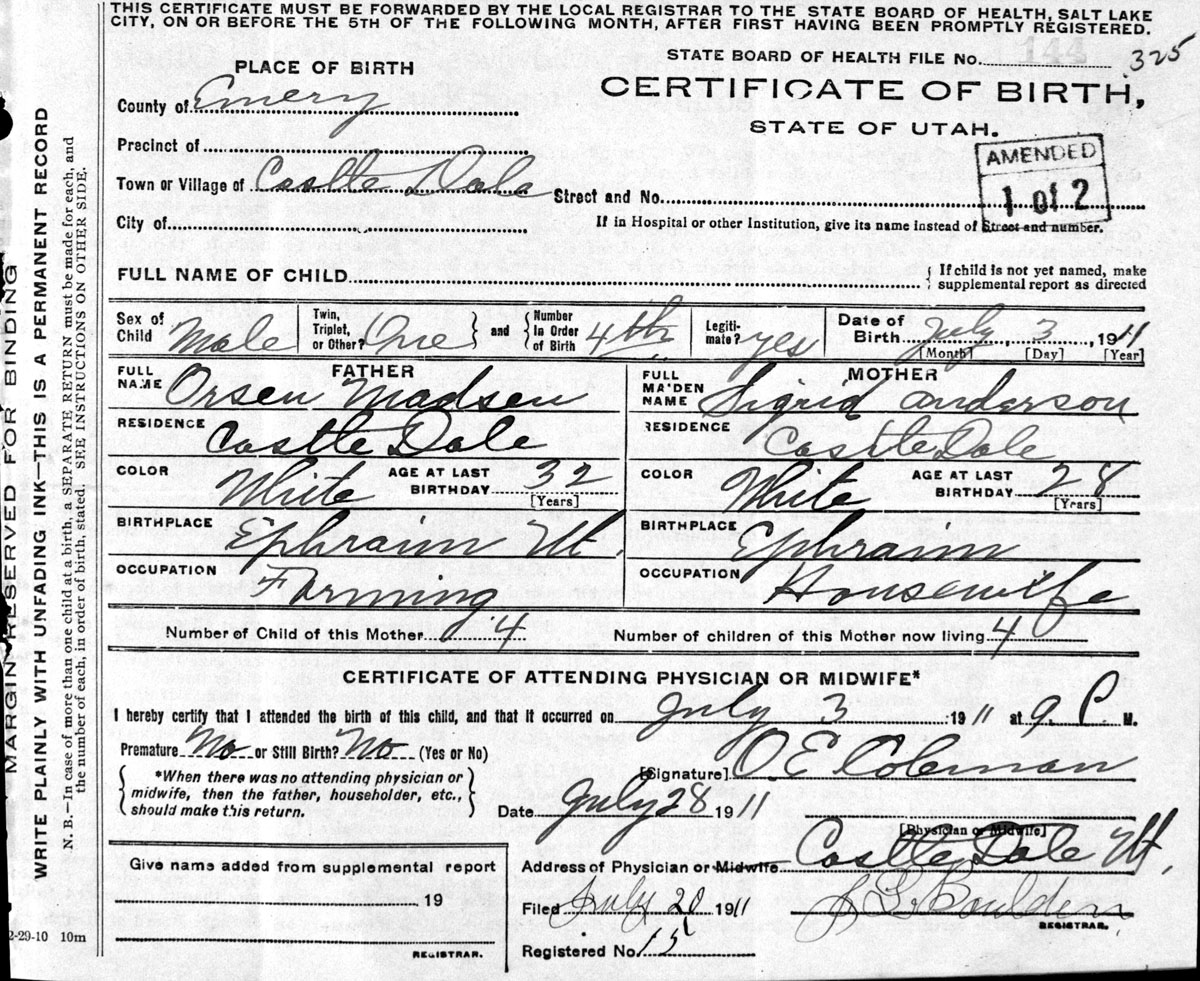 THIS CERTIFICATE MUST BE FORWARDED BY THE LOCAL REGISTRAR TO THE STATE BOARD OF HEALTH, SALT LAKE
CITY, ON OR BEFORE THE 5TH OF THE FOLLOWING MONTH, AFTER FIRST HAVING BEEN PROMPTLY REGISTERED.
STATE BOARD OF HEALTH FILE No. 325
PLACE OF BIRTH
CERTIFICATE OF BIRTH,
County of Emery
STATE OF UTAH.
Precinct of
AMENDED
1 of 2
Town or Village of Castle Dale Street and No.
City of If in Hospital or other Institution, give its name instead of Street and number.
FULL NAME OF CHILD { If child is not yet named, make
supplemental report as directed
Sex of Child Male Twin, Triplet, or Other? One } and { Number In Order of Birth 4th Legiti-mate? yes Date of Birth July 3, 1911
[Month] [Day] [Year]
FATHER MOTHER
FULL NAME Orsen Madsen FULL MAIDEN NAME Sigrid Anderson
RESIDENCE Castle Dale RESIDENCE Castle Dale
COLOR White AGE AT LAST BIRTHDAY 32 [Years] COLOR White AGE AT LAST BIRTHDAY 28 [Years]
BIRTHPLACE Ephraim Ut. BIRTHPLACE Ephraim
OCCUPATION Farming OCCUPATION Housewife
Number of Child of this Mother 4 Number of children of this Mother now living 4
CERTIFICATE OF ATTENDING PHYSICIAN OR MIDWIFE*
I hereby certify that I attended the birth of this child, and that it occurred on July 3 1911 at 9 P. M.
Premature No or Still Birth? No (Yes or No)
*When there was no attending physician or
midwife, then the father, householder, etc.,
should make this return.
[Signature] O. E. Coleman
Date July 28 1911
[Physician or Midwife]
Give name added from supplemental report
19
REGISTRAR.
Address of Physician or Midwife Castle Dale Ut.
Filed July 1911 Boulden
REGISTRAR.
Registered No. 15
MARGIN RESERVED FOR BINDING
WRITE PLAINLY WITH UNFADING INK—THIS IS A PERMANENT RECORD
N. B.—In case of more than one child at a birth, a SEPARATE RETURN must be made for each, and
the number of each, in order of birth, stated. SEE INSTRUCTIONS ON OTHER SIDE.
2-29-10 10m